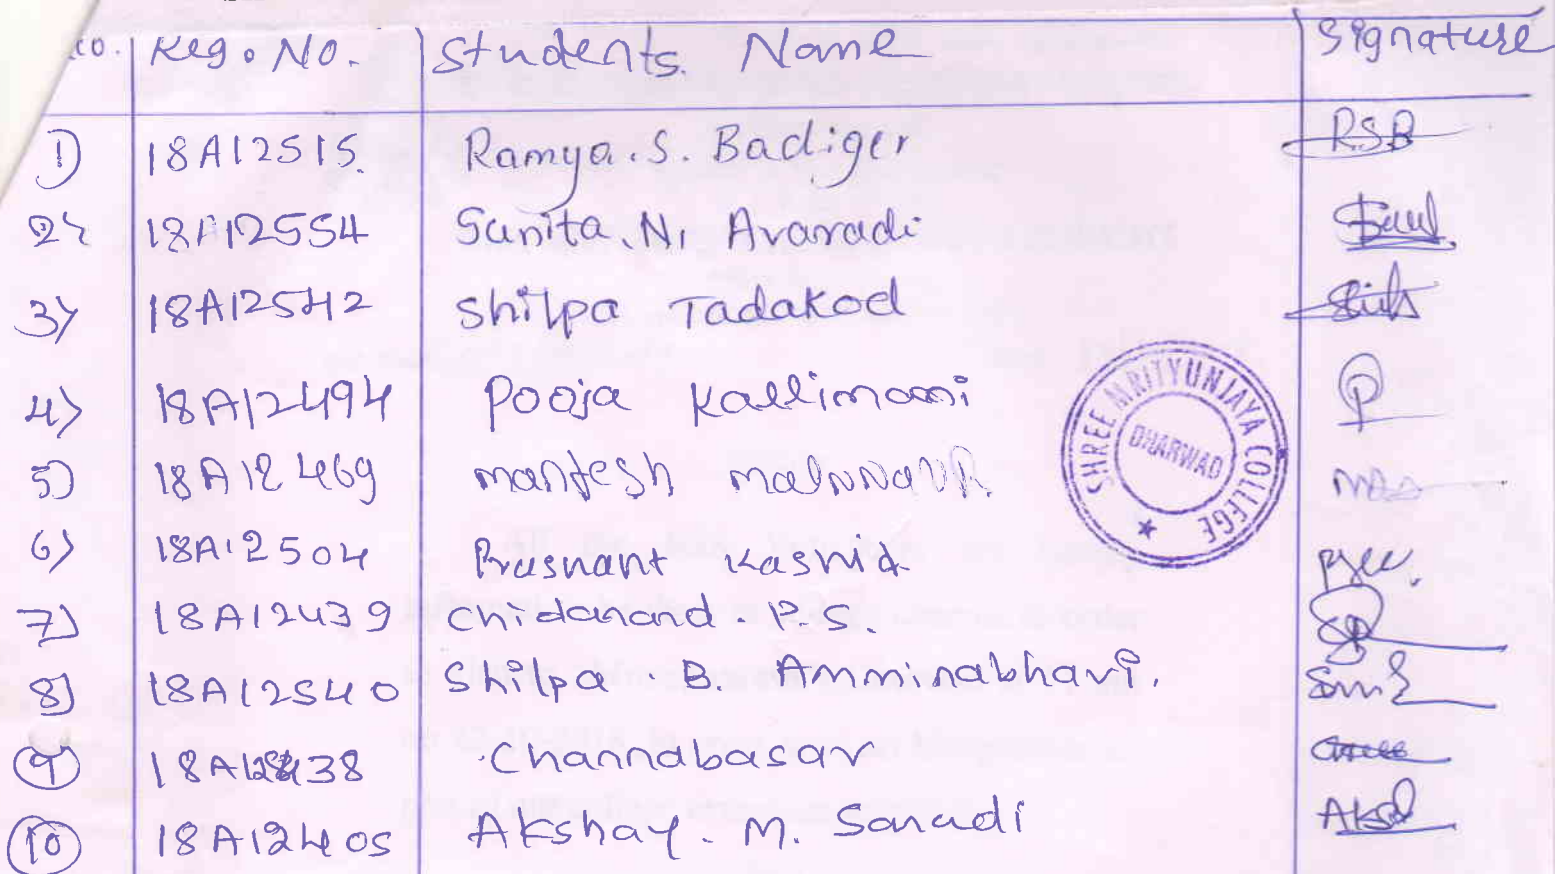 Reg. No. Students Name Signature
1) 18A12515. Ramya.S. Badiger RSB
2) 18A12554 Sunita.N. Avaradi
3) 18A12542 Shilpa Tadakod
4) 18A12494 Pooja Kallimani P
5) 18A12469 Mantesh
6) 18A12504 Prashant Kashid
7) 18A12439 Chidanand. P.S.
8) 18A12540 Shilpa. B. Amminabhavi.
9 18A12438 Channabasav
10 18A12405 Akshay. M. Sanadi
SHREE MRITYUNJAYA COLLEGE
DHARWAD